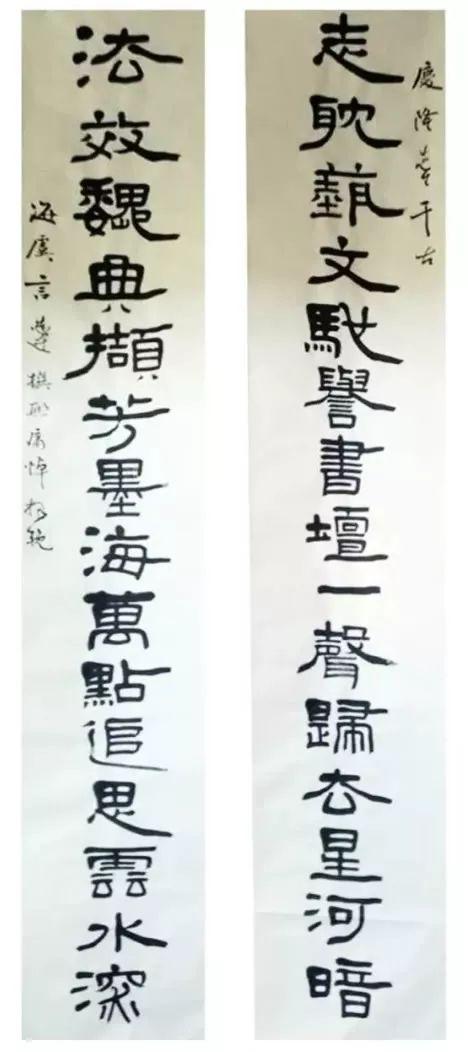 慶隆先生千古
志耽藝文馳譽書壇一聲歸去星河暗
法效魏典擷芳墨海萬點追思雲水深
海虞言恭達撰聯痛悼